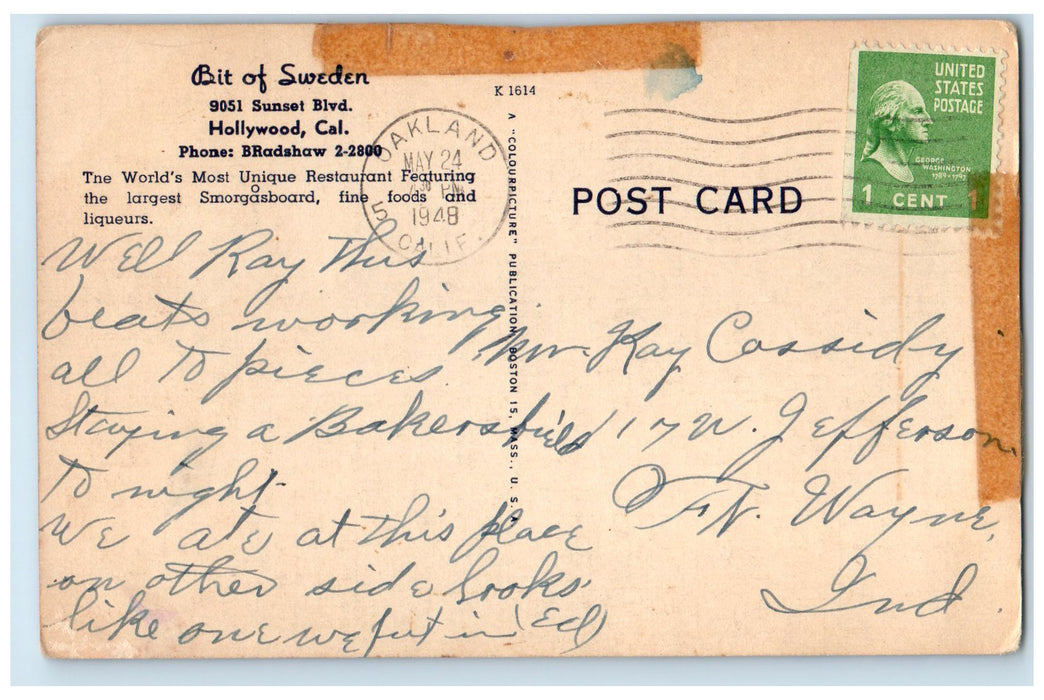 Bit of Sweden
9051 Sunset Blvd.
Hollywood, Cal.
Phone: BRadshaw 2-2800
The World's Most Unique Restaurant Featuring
the largest Smorgasboard, fine foods and
liqueurs.
K 1614
A "COLOURPICTURE" PUBLICATION BOSTON 15, MASS., U. S. A.
OAKLAND
MAY 24
PM
1948
CALIF.
POST CARD
UNITED
STATES
POSTAGE
GEORGE
WASHINGTON
1789-1797
1 CENT 1
Well Ray This
beats working
all To pieces
Staying a Bakersfield
To night.
We ate at this place
on other side looks
like one we put in (Ed)
Mr. Ray Cassidy
17 W. Jefferson
Ft. Wayne,
Ind.